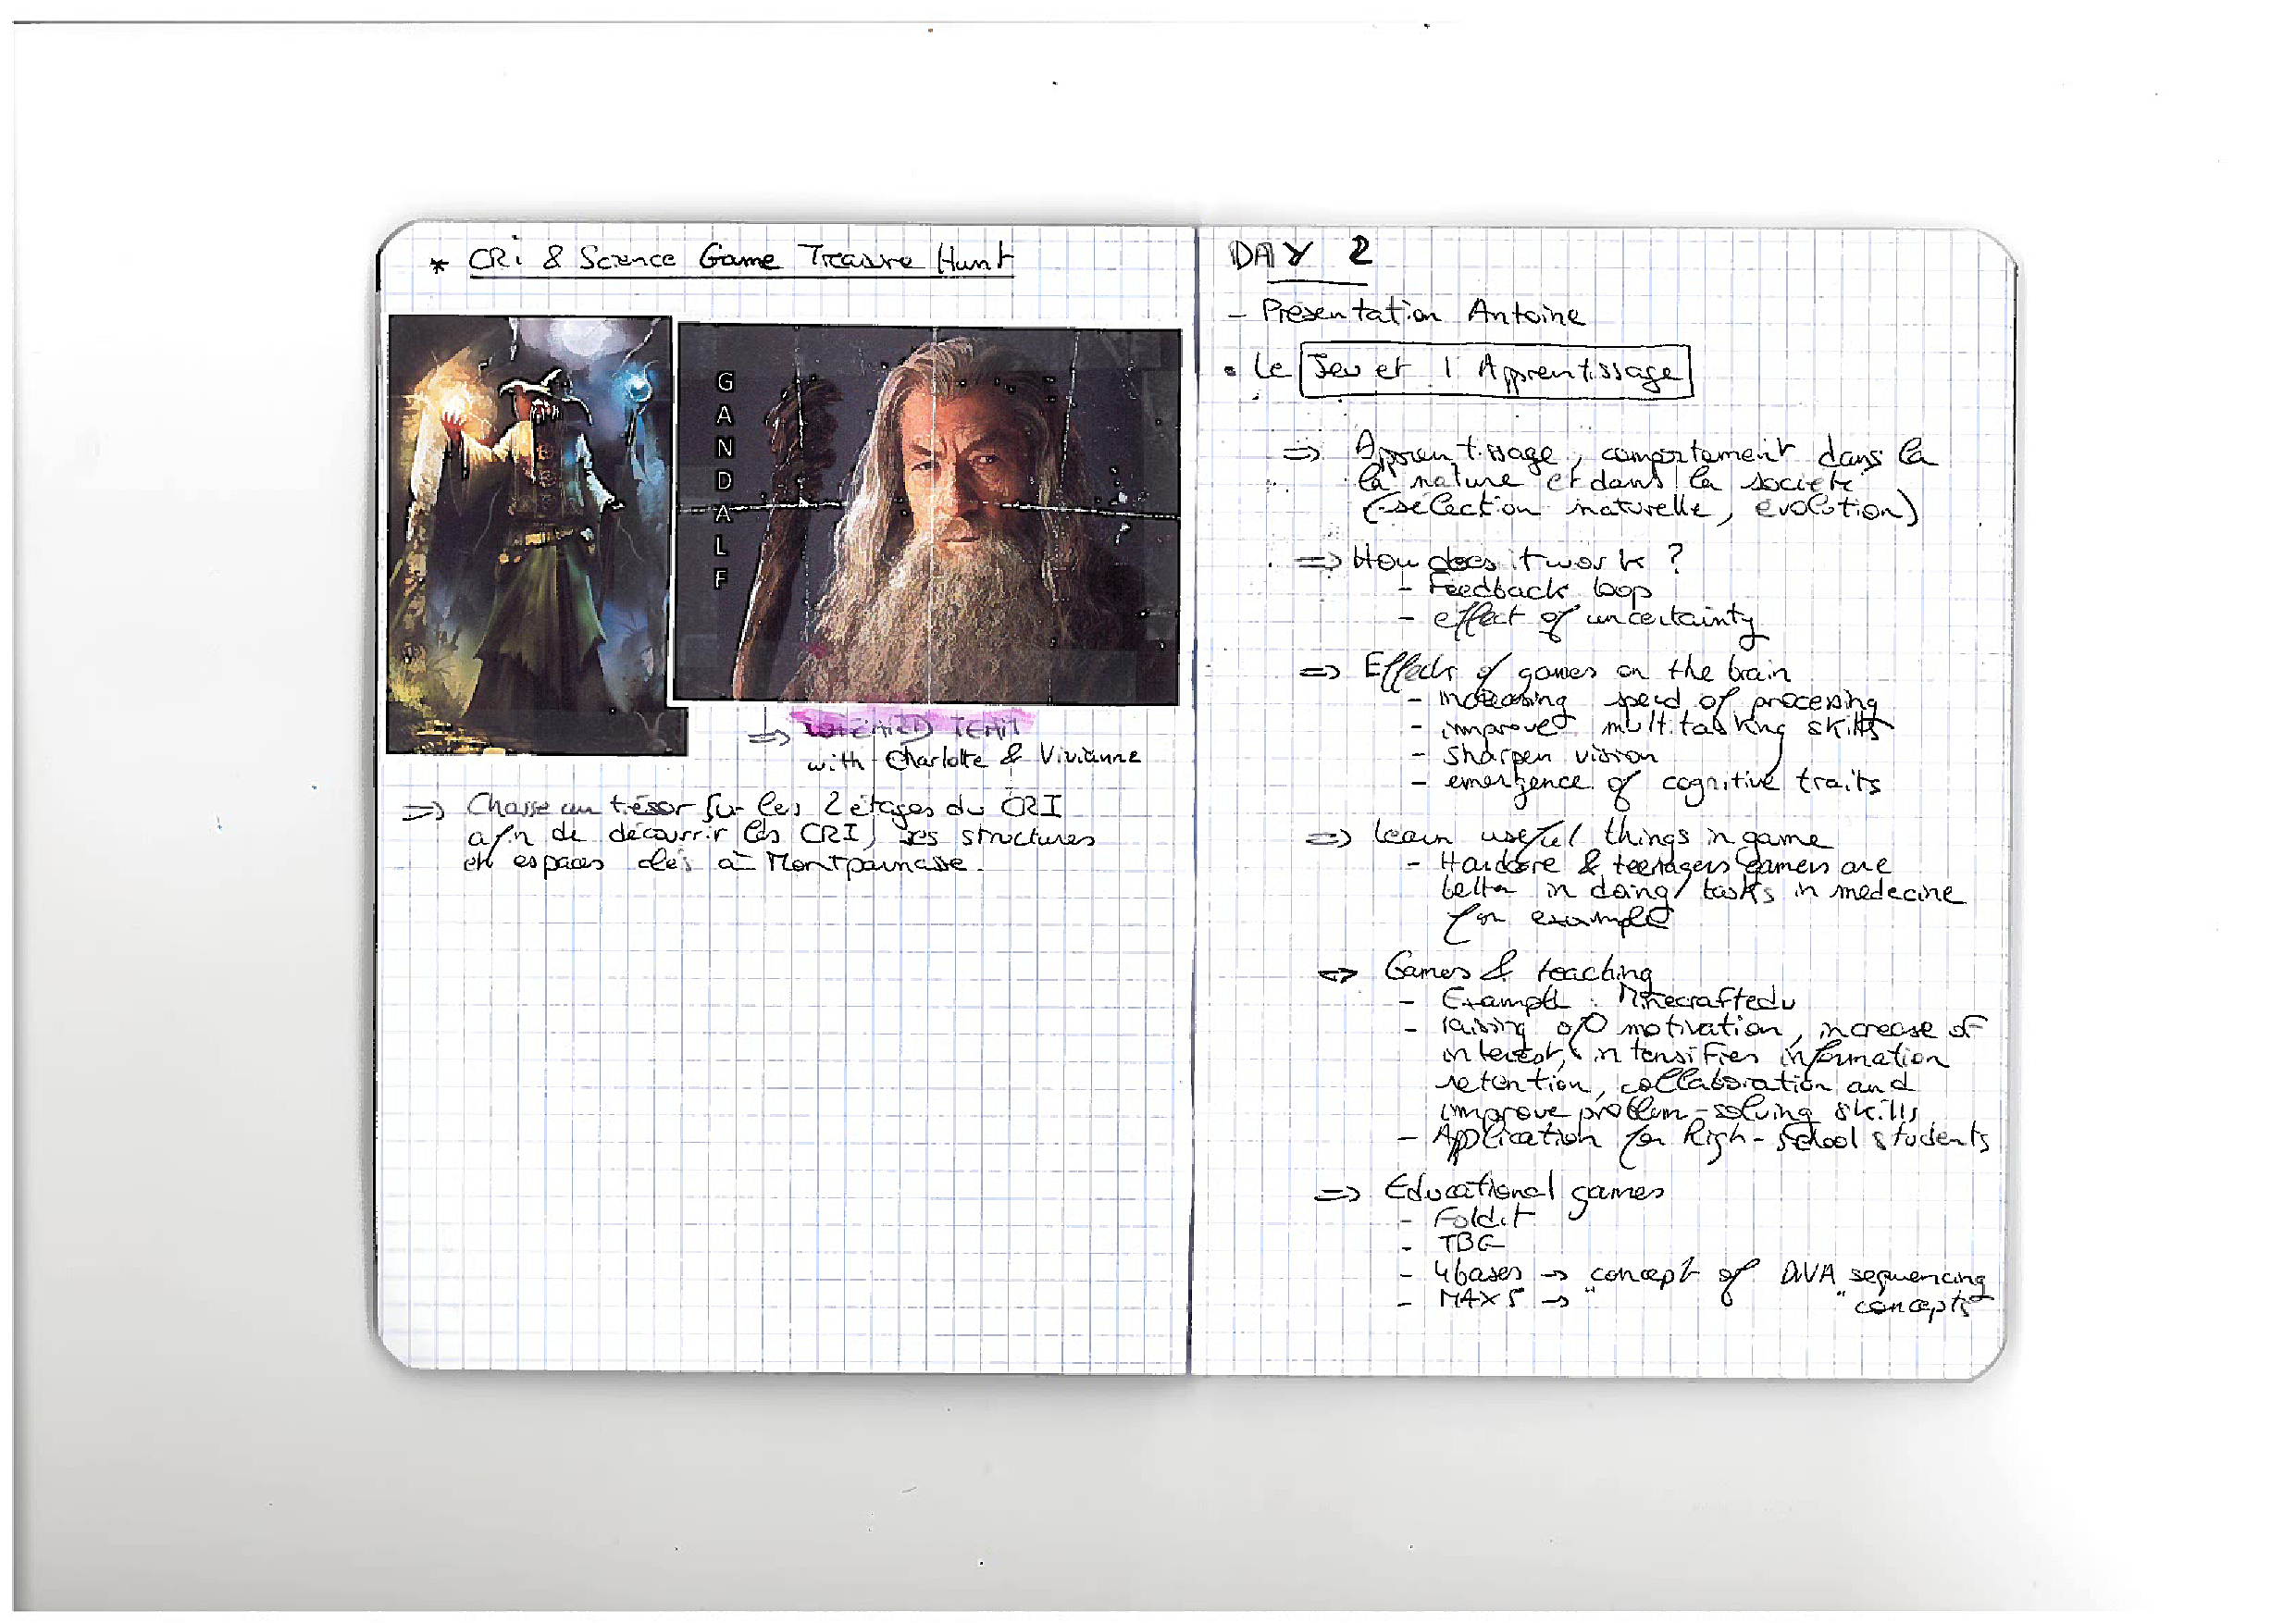 * CRi & Science Game Treasure Hunt
G
A
N
D
A
L
F
=> WIZARD TEAM
with Charlotte & Vivianne
=> Chasse au trésor sur les 2 étages du CRI
afin de découvrir les CRI, ses structures
et espaces clés à Montparnasse.
DAY 2
- Presentation Antoine
• Le Jeu et l Apprentissage
=> Apprentissage, comportement dans la
la nature et dans la societé
(-sélection naturelle, évolution)
=> How does it work ?
- Feedback loop
- effect of uncertainty
=> Effects of games on the brain
- increasing speed of processing
- improve multitasking skills
- sharpen vision
- emergence of cognitive traits
=> learn useful things in game
- Hardcore & teenagers gamers are
better in doing tasks in medecine
for example
=> Games & teaching
- Example : Minecraftedu
- raising of motivation, increase of
interest, intensifies information
retention, collaboration and
improve problem-solving skills
- Application for high-school students
=> Educational games
- Foldit
- TBG
- 4bases -> concept of DNA sequencing
- MAX5 -> " " concepts